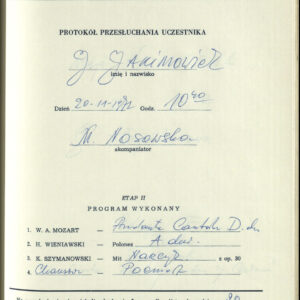 PROTOKÓŁ PRZESŁUCHANIA UCZESTNIKA
J. Jakimowicz
imię i nazwisko
Dzień 20-11-1972 Godz. 10 40
M. Nosowska
akompaniator
ETAP II
PROGRAM WYKONANY
1. W. A. MOZART — Andante Cantab. D-dur
2. H. WIENIAWSKI — Polonez A dur
3. K. SZYMANOWSKI — Mit Narcyz z op. 30
4. Chausson — Poemat